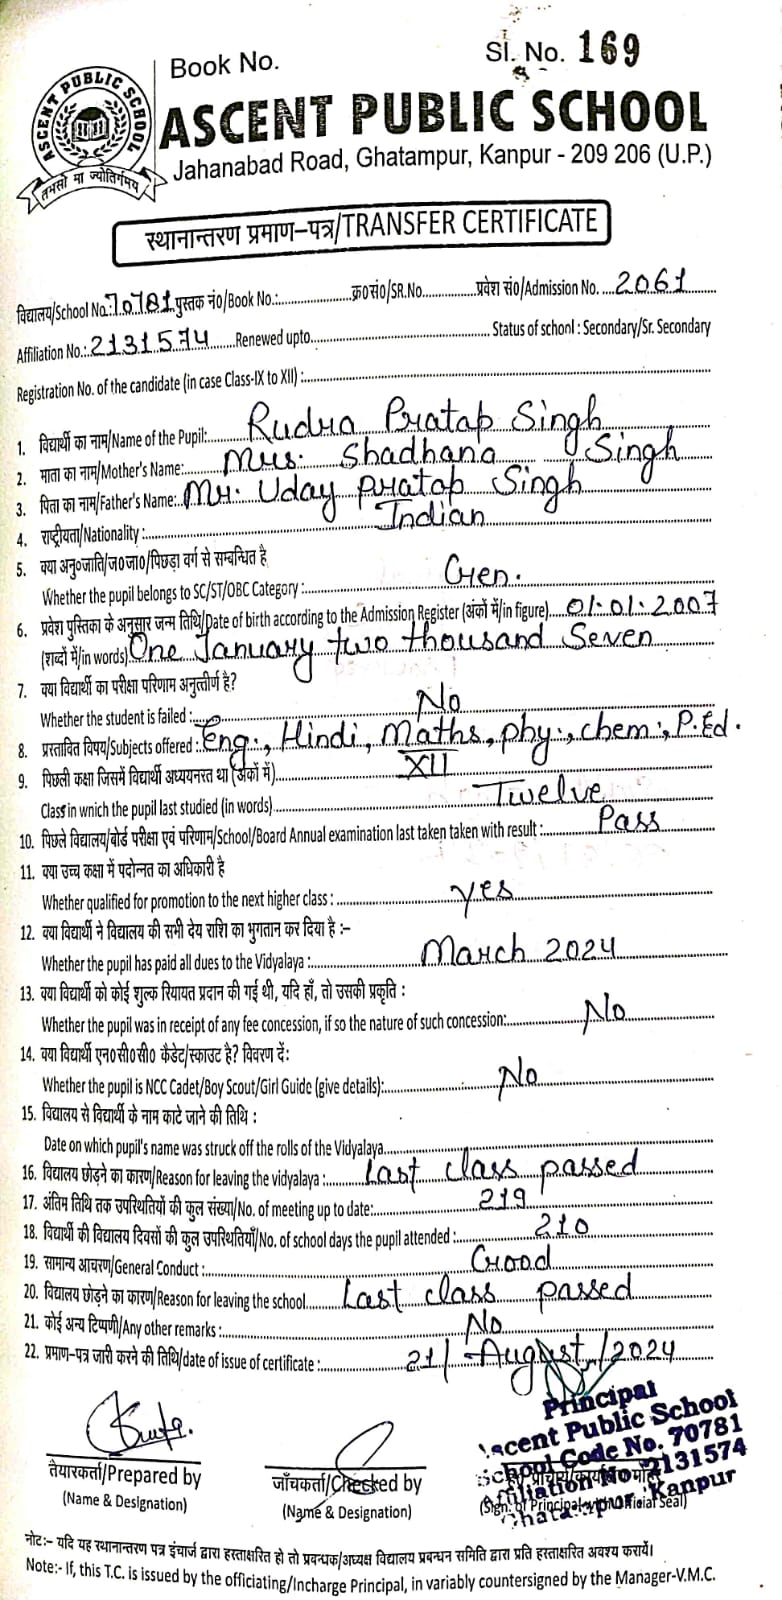 Book No.
Sl. No. 169
ASCENT PUBLIC SCHOOL
तमसो मा ज्योतिर्गमय
ASCENT PUBLIC SCHOOL
Jahanabad Road, Ghatampur, Kanpur - 209 206 (U.P.)
स्थानान्तरण प्रमाण-पत्र/TRANSFER CERTIFICATE
विद्यालय/School No.: 70781 पुस्तक नं०/Book No.:.......... क्र०सं०/SR.No.......... प्रवेश सं०/Admission No. ....2061
Affiliation No.: 2131574 ......Renewed upto.......... Status of school : Secondary/Sr. Secondary
Registration No. of the candidate (in case Class-IX to XII) :..........
1. विद्यार्थी का नाम/Name of the Pupil: Rudra Pratap Singh
2. माता का नाम/Mother's Name: Mrs. Shadhana Singh
3. पिता का नाम/Father's Name: Mr. Uday Pratap Singh
4. राष्ट्रीयता/Nationality : Indian
5. क्या अनु०जाति/ज०जा०/पिछड़ा वर्ग से सम्बन्धित है
Whether the pupil belongs to SC/ST/OBC Category : Gen.
6. प्रवेश पुस्तिका के अनुसार जन्म तिथि/Date of birth according to the Admission Register (अंकों में/in figure).... 01.01.2007
(शब्दों में/in words) One January two thousand Seven
7. क्या विद्यार्थी का परीक्षा परिणाम अनुत्तीर्ण है?
Whether the student is failed : No
8. प्रस्तावित विषय/Subjects offered : Eng., Hindi, Maths, phy., chem., P.Ed.
9. पिछली कक्षा जिसमें विद्यार्थी अध्ययनरत था (अंकों में) XII
Class in wnich the pupil last studied (in words) Twelve
10. पिछले विद्यालय/बोर्ड परीक्षा एवं परिणाम/School/Board Annual examination last taken taken with result : Pass
11. क्या उच्च कक्षा में पदोन्नत का अधिकारी है
Whether qualified for promotion to the next higher class : yes
12. क्या विद्यार्थी ने विद्यालय की सभी देय राशि का भुगतान कर दिया है :-
Whether the pupil has paid all dues to the Vidyalaya : March 2024
13. क्या विद्यार्थी को कोई शुल्क रियायत प्रदान की गई थी, यदि हाँ, तो उसकी प्रकृति :
Whether the pupil was in receipt of any fee concession, if so the nature of such concession: No
14. क्या विद्यार्थी एन०सी०सी० कैडेट/स्काउट है? विवरण दें:
Whether the pupil is NCC Cadet/Boy Scout/Girl Guide (give details): No
15. विद्यालय से विद्यार्थी के नाम काटे जाने की तिथि :
Date on which pupil's name was struck off the rolls of the Vidyalaya..........
16. विद्यालय छोड़ने का कारण/Reason for leaving the vidyalaya : Last class passed
17. अंतिम तिथि तक उपस्थितियों की कुल संख्या/No. of meeting up to date: 219
18. विद्यार्थी की विद्यालय दिवसों की कुल उपस्थितियाँ/No. of school days the pupil attended : 210
19. सामान्य आचरण/General Conduct : Good
20. विद्यालय छोड़ने का कारण/Reason for leaving the school Last class passed
21. कोई अन्य टिप्पणी/Any other remarks : No
22. प्रमाण-पत्र जारी करने की तिथि/date of issue of certificate : 21/August/2024
Principal
Ascent Public School
School Code No. 70781
Affiliation No. 2131574
Ghatampur, Kanpur
तैयारकर्ता/Prepared by
(Name & Designation)
जाँचकर्ता/Checked by
(Name & Designation)
(Sign. of Principal with Official Seal)
नोट:- यदि यह स्थानान्तरण पत्र इंचार्ज द्वारा हस्ताक्षरित हो तो प्रवन्धक/अध्यक्ष विद्यालय प्रबन्धन समिति द्वारा प्रति हस्ताक्षरित अवश्य करायें।
Note:- If, this T.C. is issued by the officiating/Incharge Principal, in variably countersigned by the Manager-V.M.C.